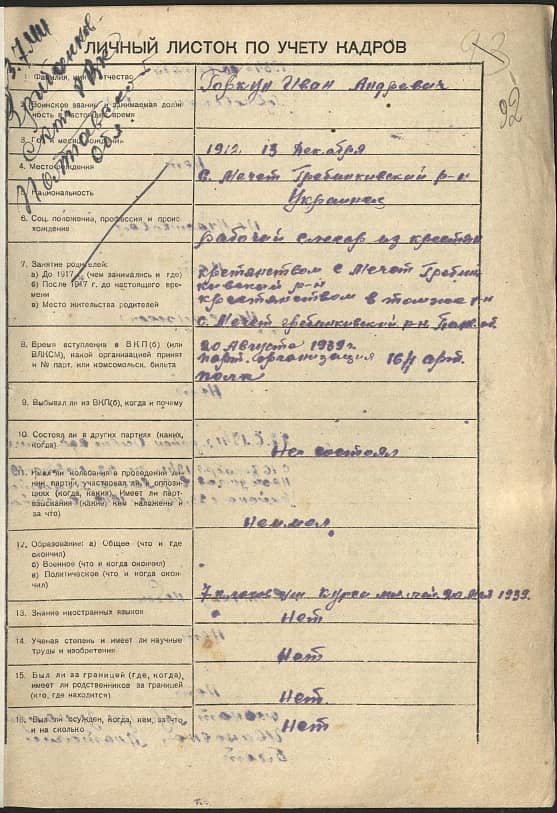 93
92
ЛИЧНЫЙ ЛИСТОК ПО УЧЕТУ КАДРОВ
1. Фамилия, имя, отчество
Горкун Иван Андревич
2. Воинское звание и занимаемая долж
ность в настоящее время
3. Год и месяц рождения
1912. 13 Декабря
4. Месторождения
с. Мечет Гребинкивский р-н
5. Национальность
Украинец
6. Соц. положение, профессия и проис
хождение
рабочий слесар из крестян
7. Занятие родителей:
а) До 1917 г. (чем занимались и где)
б) После 1917 г. до настоящего вре-
мени
в) Место жительства родителей
крестянством с Мечет Гребин
кивский р-н
крестянством в томже р-н
с. Мечет гребинкивский р-н
8. Время вступления в ВКП(б) (или
ВЛКСМ), какой организацией принят
и № парт. или комсомольск. билета
20 Августа 1939 г.
парт. организация 164 арт.
полк
9. Выбывал ли из ВКП(б), когда и почему
10. Состоял ли в других партиях (каких,
когда)
Не состоял
11. Имел ли колебания в проведении ли-
нии партии, участвовал ли в оппози-
циях (когда, каких). Имеет ли парт-
взыскания (какие, кем наложены и
за что)
Неимел
12. Образование: а) Общее (что и где
окончил)
б) Военное (что и когда окончил)
в) Политическое (что и когда окон-
чил)
7 класов Курсы 1939.
13. Знание иностранных языков
Нет
14. Ученая степень и имеет ли научные
труды и изобретения
Нет
15. Был ли за границей (где, когда),
имеет ли родственников за границей
(кто, где находится)
Нет.
16. Был ли осужден, когда, кем, за что
и на сколько
Нет